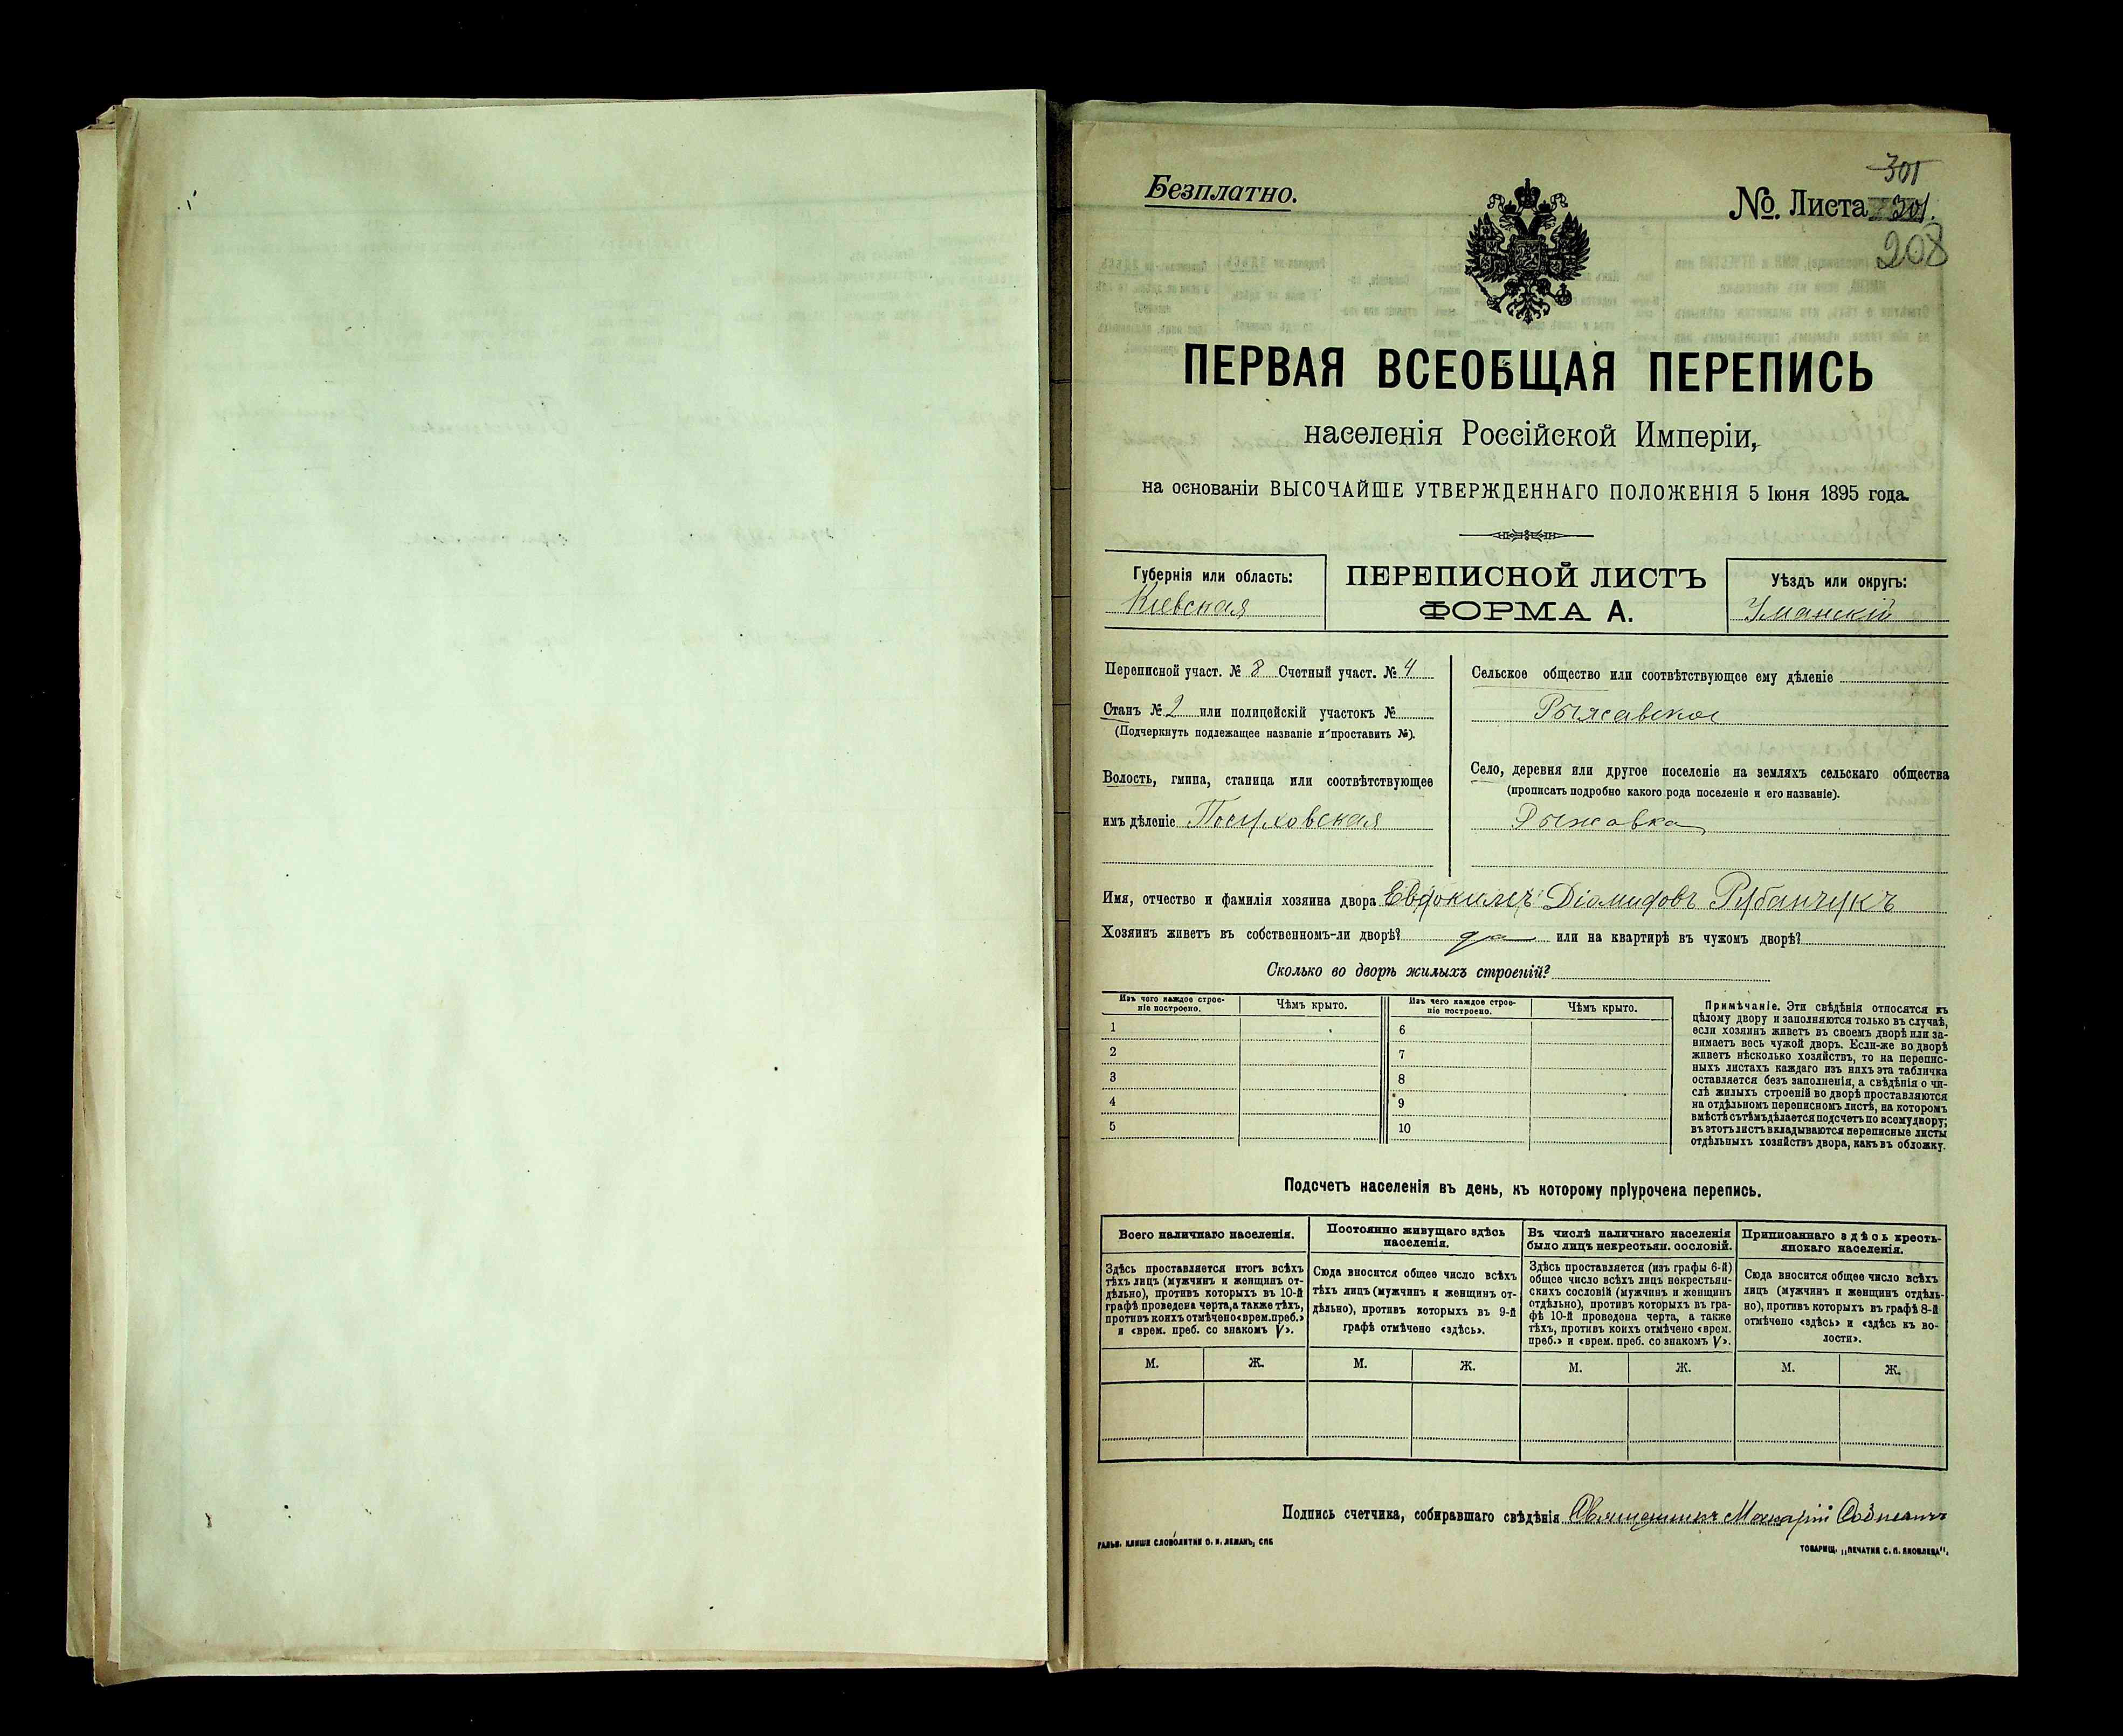 Безплатно.
301
№. Листа 301.
208
ПЕРВАЯ ВСЕОБЩАЯ ПЕРЕПИСЬ
населенія Россійской Имперіи,
на основаніи ВЫСОЧАЙШЕ УТВЕРЖДЕННАГО ПОЛОЖЕНІЯ 5 Іюня 1895 года.
Губернія или область:
Кіевская
ПЕРЕПИСНОЙ ЛИСТЪ
ФОРМА А.
Уѣздъ или округъ:
Уманскій
Переписной участ. № 8 Счетный участ. № 4
Станъ № 2 или полицейскій участокъ №
(Подчеркнуть подлежащее названіе и проставить №).
Волость, гмина, станица или соотвѣтствующее
имъ дѣленіе Посуховская
Сельское общество или соотвѣтствующее ему дѣленіе
Рыжавское
Село, деревня или другое поселеніе на земляхъ сельскаго общества
(прописать подробно какого рода поселеніе и его названіе).
Рыжавка
Имя, отчество и фамилія хозяина двора Евдокимъ Діомидовъ Рубанчукъ
Хозяинъ живетъ въ собственномъ-ли дворѣ? да или на квартирѣ въ чужомъ дворѣ?
Сколько во дворѣ жилыхъ строеній?
Изъ чего каждое строе-
ніе построено.
Чѣмъ крыто.
Изъ чего каждое строе-
ніе построено.
Чѣмъ крыто.
1
2
3
4
5
6
7
8
9
10
Примѣчаніе. Эти свѣдѣнія относятся къ
цѣлому двору и заполняются только въ случаѣ,
если хозяинъ живетъ въ своемъ дворѣ или за-
нимаетъ весь чужой дворъ. Если-же во дворѣ
живетъ нѣсколько хозяйствъ, то на перепис-
ныхъ листахъ каждаго изъ нихъ эта табличка
оставляется безъ заполненія, а свѣдѣнія о чи-
слѣ жилыхъ строеній во дворѣ проставляются
на отдѣльномъ переписномъ листѣ, на которомъ
вмѣстѣ съ тѣмъ дѣлается подсчетъ по всему двору;
въ этотъ листъ вкладываются переписные листы
отдѣльныхъ хозяйствъ двора, какъ въ обложку.
Подсчетъ населенія въ день, къ которому пріурочена перепись.
Всего наличнаго населенія.
Здѣсь проставляется итогъ всѣхъ
тѣхъ лицъ (мужчинъ и женщинъ от-
дѣльно), противъ которыхъ въ 10-й
графѣ проведена черта, а также тѣхъ,
противъ коихъ отмѣчено «врем. преб.»
и «врем. преб. со знакомъ V».
М. Ж.
Постоянно живущаго здѣсь
населенія.
Сюда вносится общее число всѣхъ
тѣхъ лицъ (мужчинъ и женщинъ от-
дѣльно), противъ которыхъ въ 9-й
графѣ отмѣчено «здѣсь».
М. Ж.
Въ числѣ наличнаго населенія
было лицъ некрестьян. сословій.
Здѣсь проставляется (изъ графы 6-й)
общее число всѣхъ лицъ некрестьян-
скихъ сословій (мужчинъ и женщинъ
отдѣльно), противъ которыхъ въ гра-
фѣ 10-й проведена черта, а также
тѣхъ, противъ коихъ отмѣчено «врем.
преб.» и «врем. преб. со знакомъ V».
М. Ж.
Приписаннаго здѣсь кресть-
янскаго населенія.
Сюда вносится общее число всѣхъ
лицъ (мужчинъ и женщинъ отдѣль-
но), противъ которыхъ въ графѣ 8-й
отмѣчено «здѣсь» и «здѣсь къ во-
лости».
М. Ж.
Подпись счетчика, собиравшаго свѣдѣнія Священникъ Макарій
ГАЛЬВ. КЛИШЕ СЛОВОЛИТНИ О. И. ЛЕМАНЪ, СПБ
ТОВАРИЩ. „ПЕЧАТНЯ С. П. ЯКОВЛЕВА".